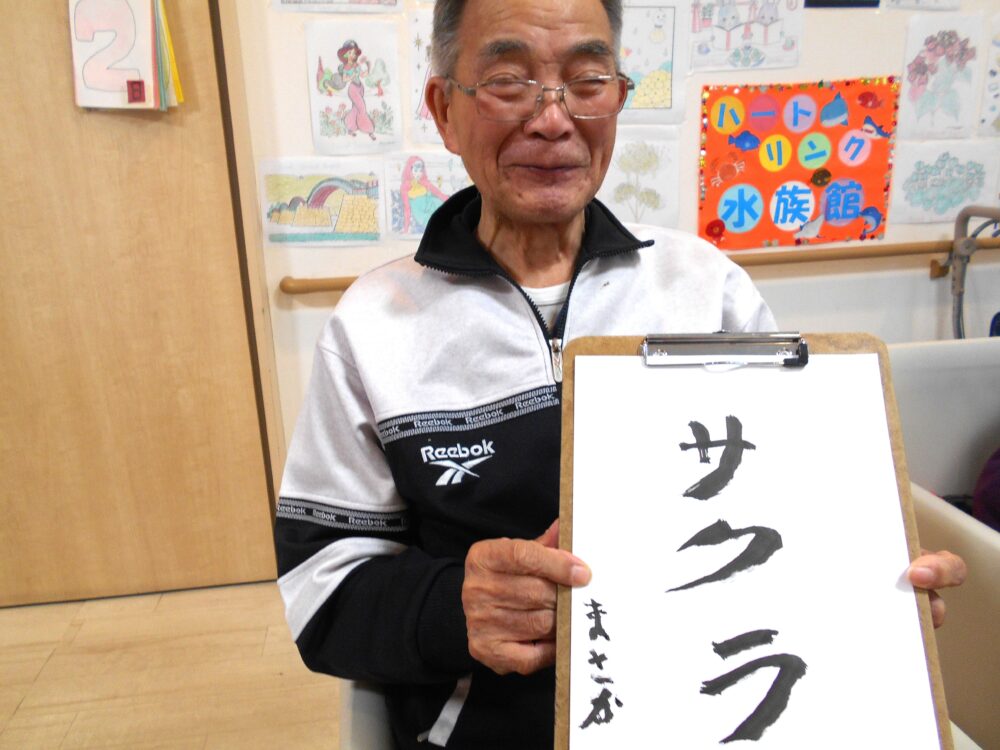 2
ハート
リンク
水族館
Reebok Reebok Reebok Reebok
Reebok
Reebok Reebok Reebok
サクラ
まさか